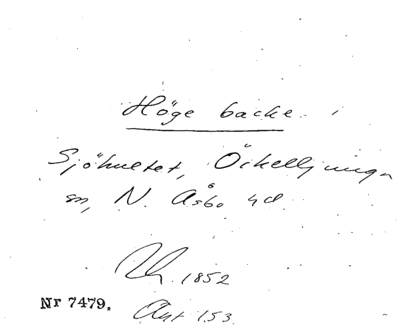 Höge backe
Sjöhultet, Örkelljunga
sn, N. Åsbo hd
1852
Nr 7479.
Avt 153